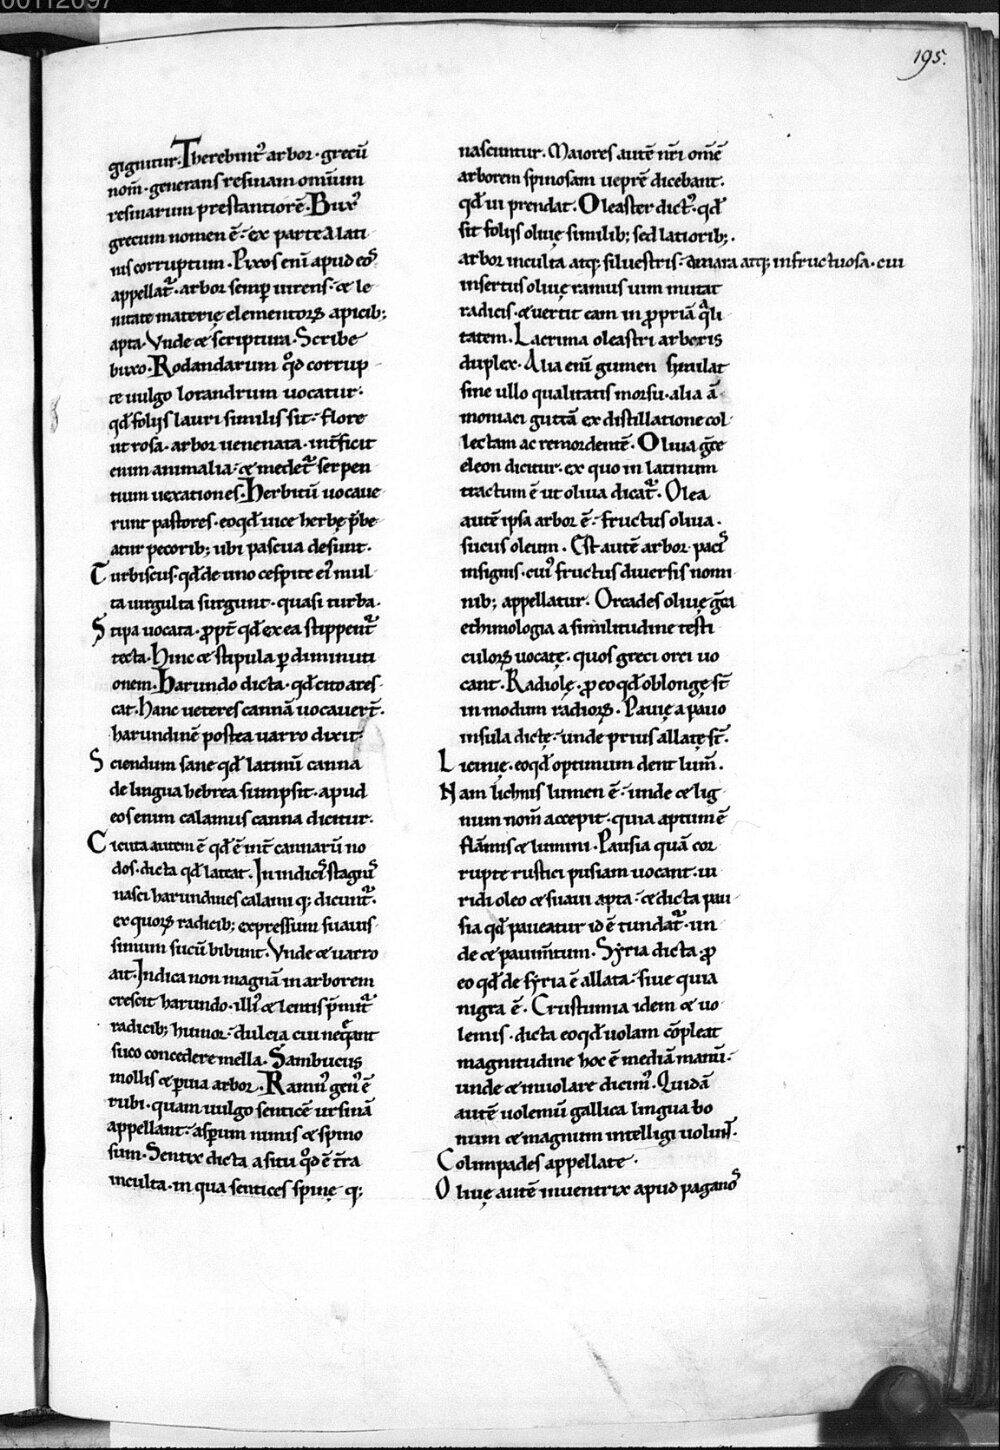 00112097
195.
gignitur. Therebint᾽ arbor · grecū
nom̄ · generans resinam omīum
resinarum prestantiorē. Bux᾽
grecum nomen ē · ex parte a lati
nis corruptum. Pixos eni᷑ apud eos᷑
appellat᷑ · arbor semp̱ uirens · ⁊ le
nitate materię elementoꝝ apicib;
apta. Vnde ⁊ scriptura. Scribe
buxo. Rodandarum qͦd corrup
te uulgo lorandrum uocatur ·
qd̄ folijs lauri similis sit · flore
ut rosa · arbor uenenata · int̄ficit
enim animalia · ⁊ medet᷑ serpen
tium uexationes. Herbitū uocaue
runt pastores · eoqd̄ uice herbę p̄be
atur pecorib; ubi pascua desunt.
Turbiscus · qd̄ de uno cespite ei᾽ mul
ta uirgulta surgunt · quasi turba.
Stipa uocata · ꝓpt̄ qd̄ ex ea stippent᷑
tecta. Hinc ⁊ stipula ꝑ diminuti
onem. Harundo dicta · qd̄ cito ares
cat. Hanc ueteres cannā uocauer̄t.
harundinē postea uarro dixit ·
Sciendum sane qd̄ latinū canna
de lingua hebrea sumpsit · apud
eos enim calamus canna dicitur.
Cicuta autem ē qd̄ ē int̄ cannarū no
dos · dicta qd̄ lateat. In indicis᷑ stagnis᷑
nasci harundines calami q; dicunt᷑.
ex quoꝝ radicib; expressum suauis
simum sucū bibunt. Vnde ⁊ uarro
ait. Indica non magnā in arborem
crescit harundo · illi᾽ ⁊ lentis p̄mit᷑
radicib; humor · dulcia cui neq̄ant
suco concedere mella. Sambucus
mollis ⁊ ꝑuia arbor. Ramn᾽ gen᾽ ē
rubi · quam uulgo senticē ursinā
appellant · asp̱um nimis ⁊ spino
sum. Sentix dicta a situ qͦd ē t̄ra
inculta · in qua sentices spinę q;
nascuntur. Maiores autē nr̄i om̄ē
arborem spinosam ueprē dicebant.
qd̄ ui prendat. Oleaster dict᾽ · qd̄
sit folijs oliuę similib; sed latiorib;.
arbor inculta atq; siluestris · amara atq; infructuosa · cui
insertus oliuę ramus uim mutat
radicis · ⁊ uertit eam in ꝓpriā q̄li
tatem. Lacrima oleastri arboris
duplex. Alia eni᷑ gumen similat
sine ullo qualitatis morsu · alia ā
moniaci guttā ex distillatione col
lectam ac remordentē. Oliua gr̄ce
eleon dicitur · ex quo in latinum
tractum ē ut oliua dicat᷑. Olea
autē ipsa arbor ē · fructus oliua.
sucus oleum. Est autē arbor pacis᷑
insignis · cui᾽ fructus diuersis nomi
nib; appellatur. Orcades oliuę gr̄ca
ethimologia a similitudine testi
culoꝝ uocatę · quos greci orci uo
cant. Radiolę · ꝓ eo qd̄ oblongę st̄
in modum radioꝝ. Pauię a pauo
insula dictę · unde prius allatę st̄.
Licinię · eoqd̄ optimum dent lum̄.
Nam lichnis lumen ē · unde ⁊ lig
num nom̄ accepit · quia aptum ē
flāmis ⁊ lumini. Pausia quā cor
rupte rustici pusiam uocant · ui
ridi oleo ⁊ suaui apta · ⁊ dicta pau
sia qd̄ paueatur id ē tundat᷑ · un
de ⁊ pauim̄tum. Syria dicta · ꝓ
eo qd̄ de syria ē allata · siue quia
nigra ē. Crustumia idem ⁊ uo
lemis · dicta eoqd̄ uolam cōpleat
magnitudine hoc ē mediā manū ·
unde ⁊ inuolare dicim᾽. Quidā
autē uolemū gallica lingua bo
num ⁊ magnum intelligi uolunt̄.
Colimpades appellate.
Oliuę autē inuentrix apud paganos᷑